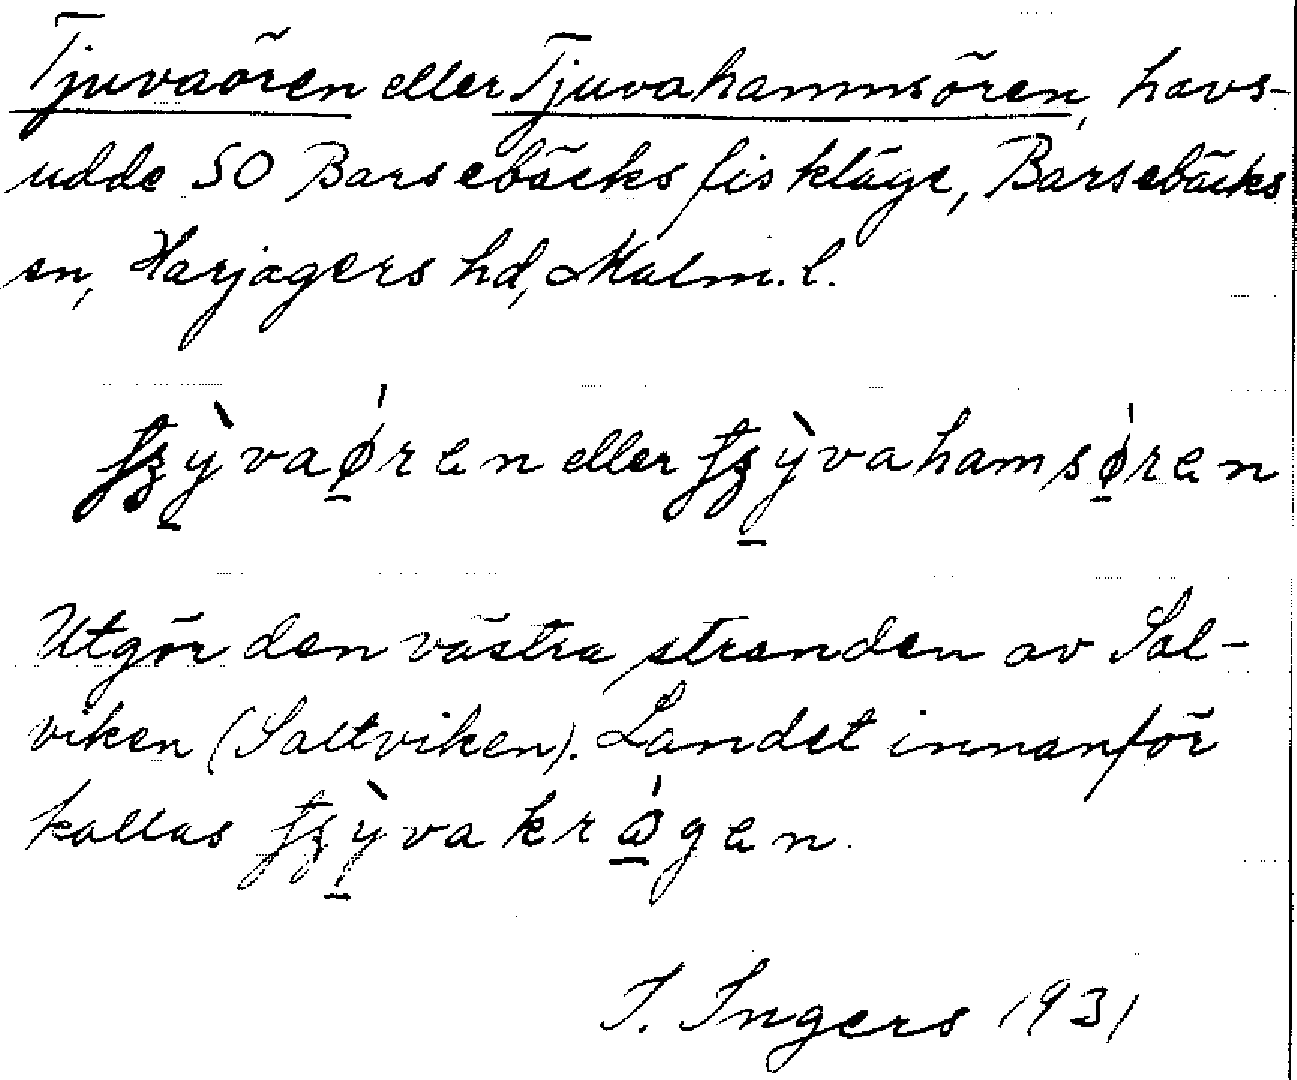 Tjuvaören eller Tjuvahamnsören, havs-
udde SO Barsebäcks fiskläge, Barsebäcks
sn, Harjagers hd, Malm. l.
eller
Utgör den västra stranden av Sal-
viken (Saltviken). Landet innanför
kallas
I. Ingers 1931